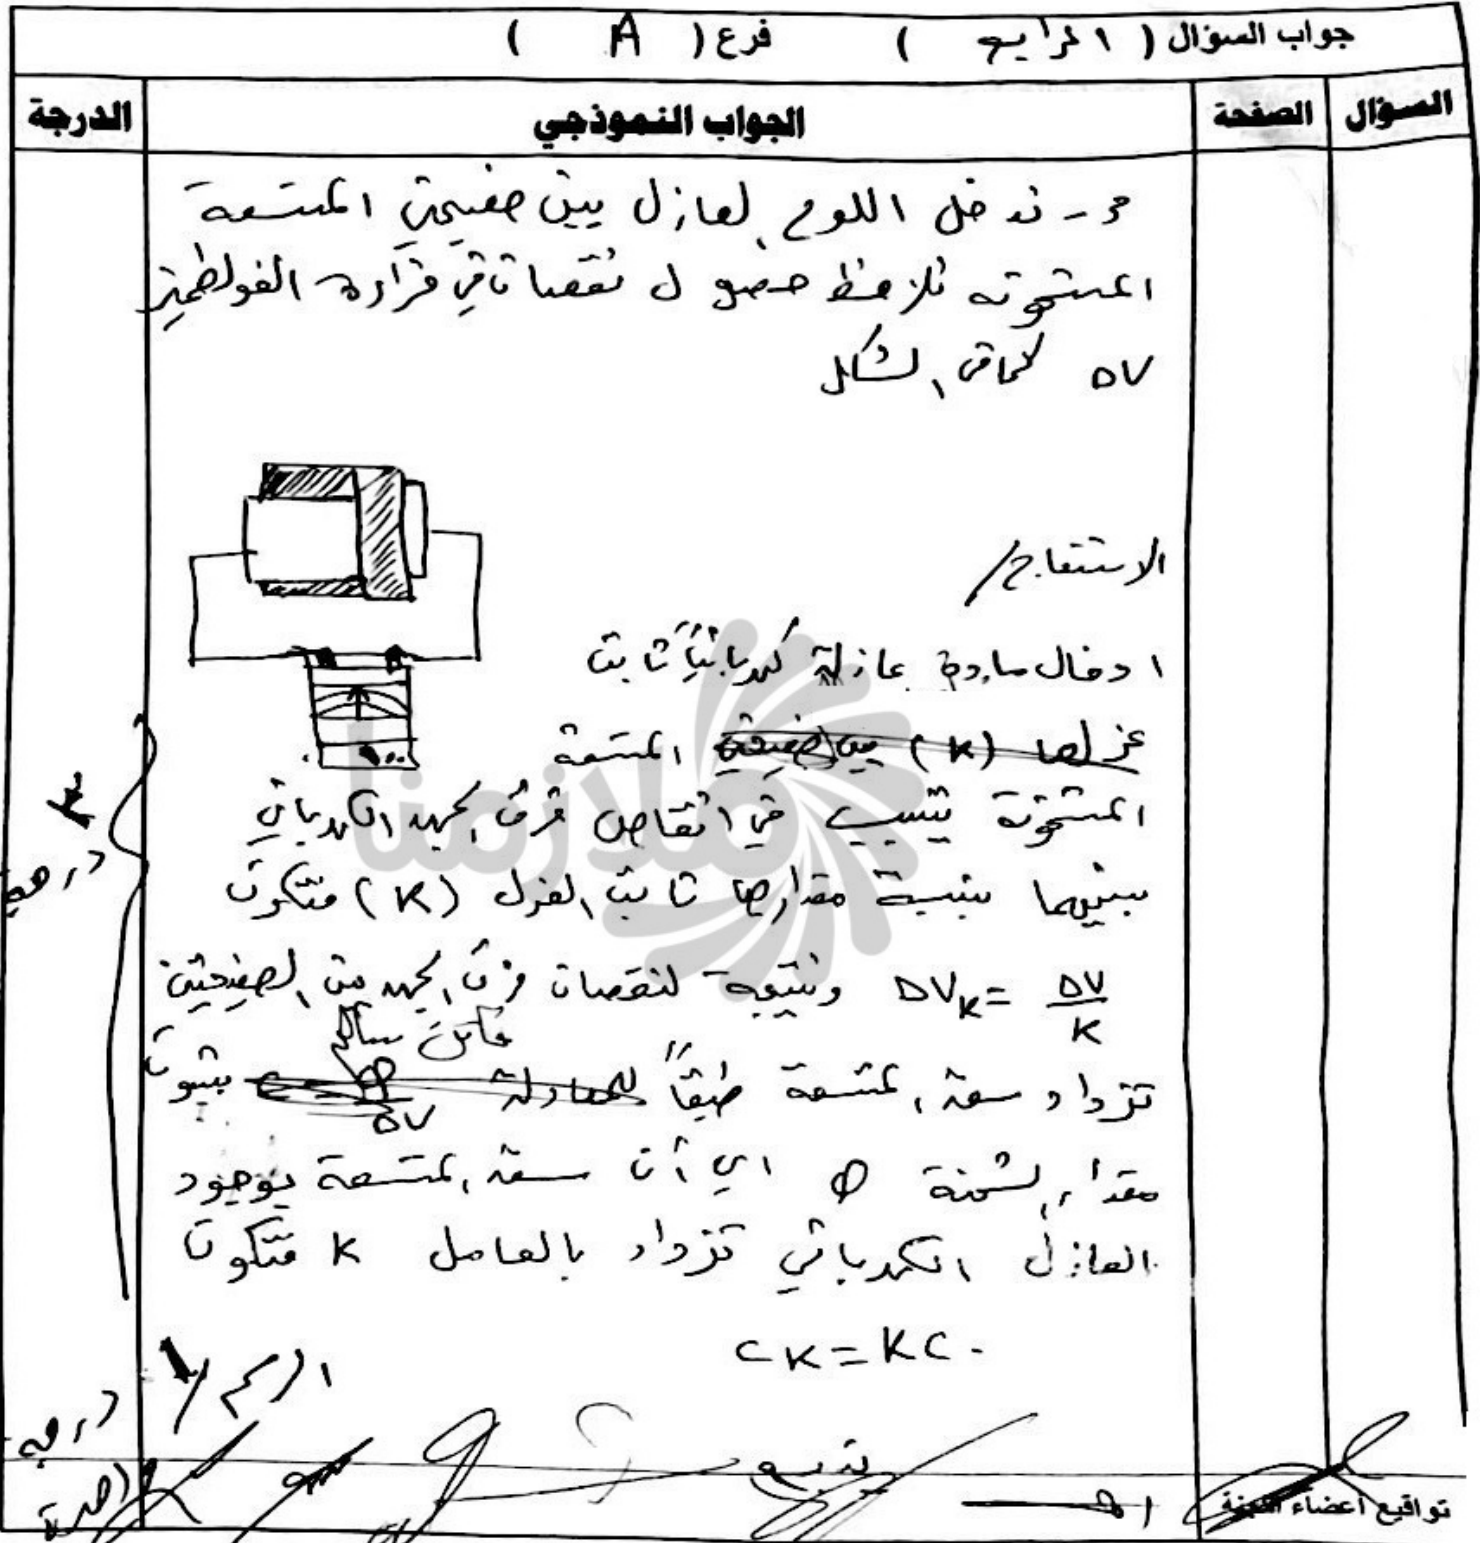 جواب السؤال ( الرابع ) فرع ( A )
السؤال الصفحة الجواب النموذجي الدرجة
٣- ندخل اللوح العازل بين صفيحتي المتسعة
المشحونة نلاحظ حصول نقصان في قراءة الفولطميتر
ΔV كما في الشكل
الاستنتاج /
ادخال مادة عازلة كهربائياً ثابت
عزلها (K) بين صفيحتي المتسعة
المشحونة يتسبب في انقاص فرق الجهد الكهربائي
بينهما بنسبة مقدارها ثابت العزل (K) فتكون
ΔVK = ΔV/K ونتيجة لنقصان فرق الجهد بين الصفيحتين
تزداد سعة المتسعة طبقاً للمعادلة ΔV بثبوت
مقدار الشحنة Q اي أن سعة المتسعة بوجود
العازل الكهربائي تزداد بالعامل K فتكون
CK = KC
٣
درجة
الرسم / ١
درجة
واحدة
تواقيع أعضاء اللجنة
ملازمنا